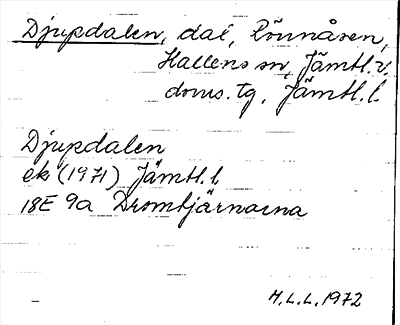 Djupdalen, dal, Rönnåsen,
Hallens sn, Jämtl. v.
doms. tg, Jämtl. l.
Djupdalen
ek (1971) Jämtl. l.
18E 9a Dromtjärnarna
H.L.L. 1972